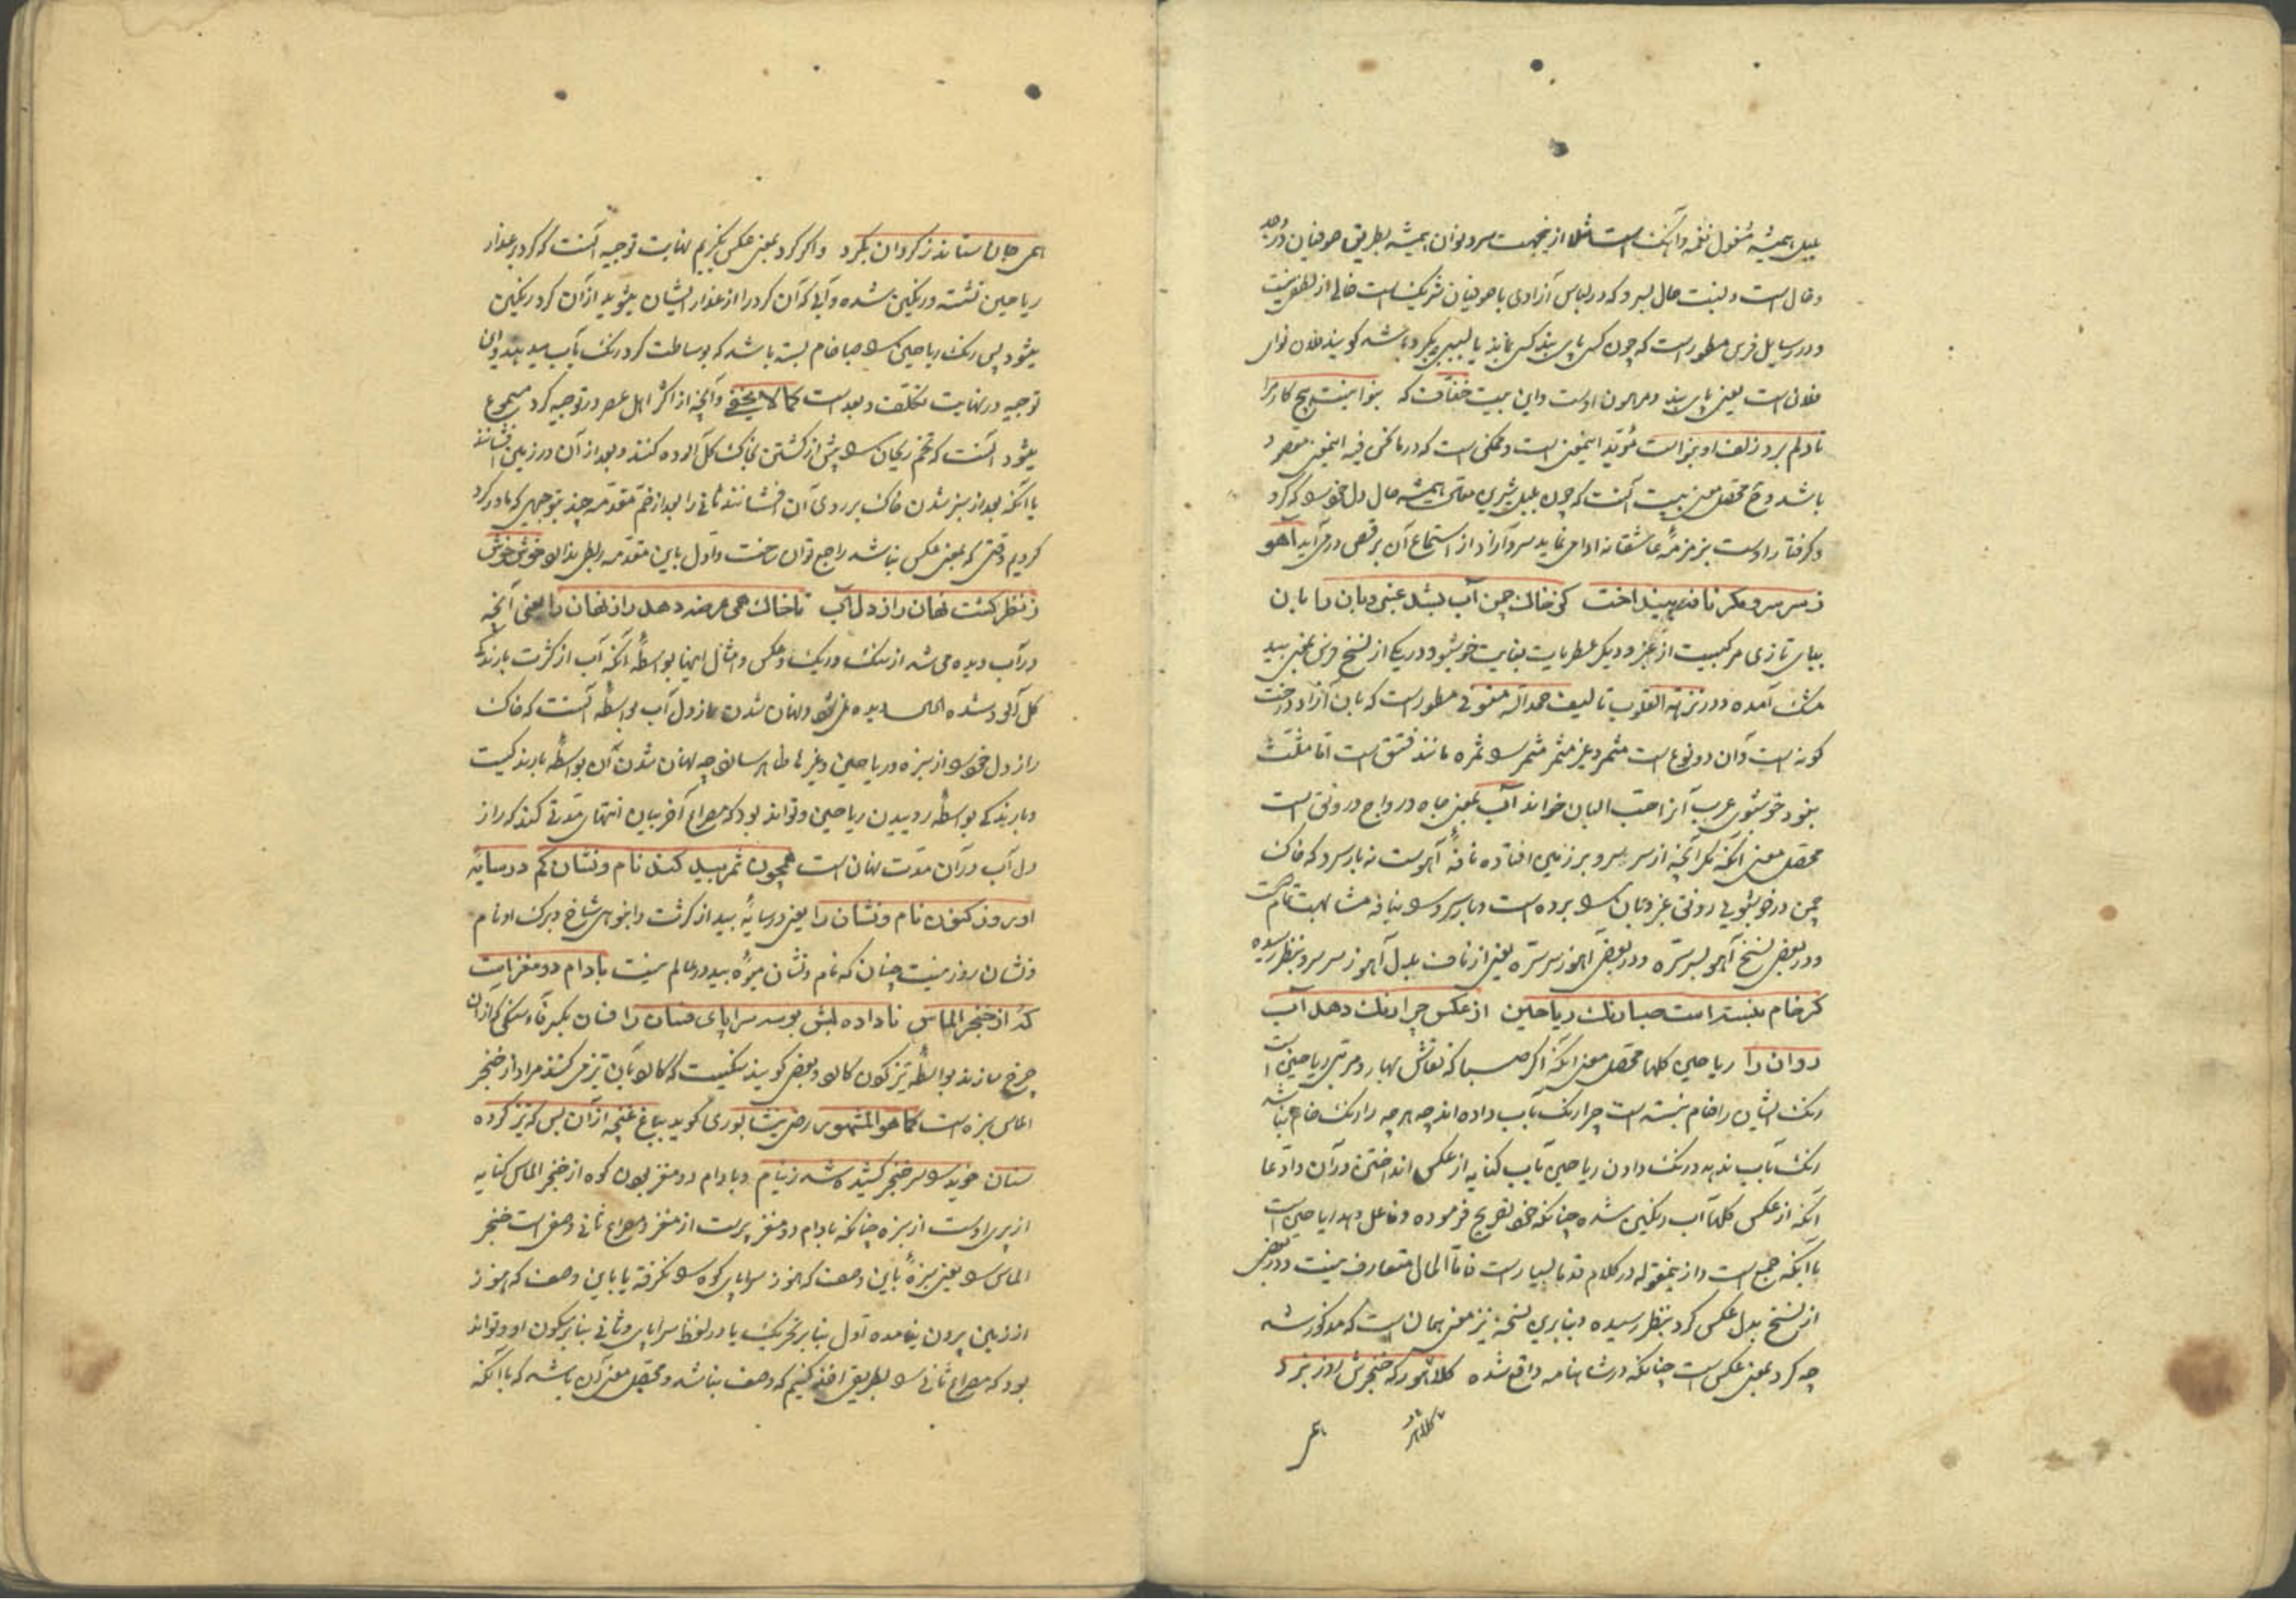 بلبل همیشه مشغول نغمه و آهنک است مثلا از ینجهت سرو نوان همیشه بطریق صوفیان در وجد
و حال است و نسبت حال بسرو که در لباس آزادی با صوفیان شریکست خالی از لطفی نیست
و در رسایل فرس مسطور است که چون کسی پای بند کسی ماند یا بسببی بکرو باشد کویند فلان نوای
فلان است یعنی پای بند و مرهون اوست و این بیت خفاف که بنوا نیست هیچ کار مرا
تا دلم بر و زلف او بنواست مؤید اینمعنی است و ممکن است که در ما نحن فیه اینمعنی مقصود
باشد و ح محصل معنی بیت آنست که چون بلبل بشیرین مقالی همیشه حال دل خود را که کرو
و کرفتار اوست بزمزمهٔ عاشقانه ادا می نماید سرو آزاد از استماع آن برقص در می آید آهو
ز سر سرو مکر نافه بینداخت کی خاک چمن آب بشد عنبر و بان را بان
بیای تازی مرکبیست از عنبر و دیکر عطریات بغایت خوشبو و در یکی از نسخ فرس بمعنی بید
مشک آمده و در نزهة القلوب تالیف حمدالله مستوفی مسطور است که بان آزاد درخت
کونه است و آن دو نوع است مثمر و غیر مثمر مثمر را ثمره مانند فستق است اما مثلث
بغود خوشبوی عرب آنرا حب البان خواند آب بمعنی جاه و رواج و رونق است
محصل معنی آنکه مکر آنچه از سر سرو بر زمین افتاده نافهٔ آهوست نه بار سرو که خاک
چمن در خوشبویی رونق عنبر و بان را برده است و بار سرو را بنافه مشابهت تام است
و در بعضی نسخ آهو بسر سبزه و در بعضی آهو ز سر سبزه یعنی از ناف بدل آهو ز سر سرو بنظر رسیده
کر خام نبسته است صبا رنک ریاحین از عکس چرا رنک دهد آب
روان را ریاحین کلها محصل معنی آنکه اکر صبا که نقاش بهار و مربی ریاحین است
رنک ایشان را خام نبسته است چرا رنک بآب داده اند چه هر چه را رنک خام نباشد
رنک بآب ندهد و رنک دادن ریاحین بآب کنایه از عکس انداختن در آن و ادعا
آنکه از عکس کلها آب رنکین شده چنانکه خود تصریح فرموده و فاعل دهد ریاحین است
با آنکه جمع است و از ینمقوله در کلام قدما بسیار است فاما الحال متعارف نیست و در بعضی
از نسخ بدل عکس کرد بنظر رسیده و بنابرین نسخه نیز معنی همان است که مذکور شد
چه کرد بمعنی عکس است چنانکه در شاهنامه واقع شده کلاهور که خنجرش روز نبرد
همی جان ستاند ز کردان بکرد و اکر کرد بمعنی عکس نکیریم نهایت توجیه آنست که کرد بر عذار
ریاحین نشسته و رنکین شده و آبی که آن کرد را از عذار ایشان بشوید از آن کرد رنکین
میشود پس رنک ریاحین را صبا خام بسته باشد که بوساطت کرد رنک بآب میدهند و این
توجیه در نهایت تکلف و بعد است کما لا یخفی و آنچه از اکثر اهل عصر در توجیه کرد مسموع
میشود آنست که تخم ریحان را پیش از کشتن بخاک کل آلوده کنند و بعد از آن در زمین افشانند
یا آنکه بعد از سبز شدن خاک بر روی آن افشانند ثانی را بعد از ضم مقدمه چند بتوجیهی که ما در کرد
کردیم وقتی که بمعنی عکس نباشد راجع توان ساخت و اول باین مقدمه ربطی ندارد خوش خوش
ز نظر کشت نهان راز دل آب تا خاک همی عرضه دهد راز نهان را یعنی آنچه
در آب دیده می شد از سنک و ریک و عکس و امثال اینها بواسطهٔ آنکه آب از کثرت بارندکی
کل آلود شده الحال دیده نمی شود و نهان شدن راز دل آب بواسطهٔ آنست که خاک
راز دل خود را از سبزه و ریاحین و غیرها ظاهر سازد چه نهان شدن آن بواسطهٔ بارندکیست
و بارندکی بواسطهٔ روییدن ریاحین و تواند بود که مصراع آخر بیان انتهای مدتی کند که راز
دل آب در آن مدت نهان است همچون ثمر بید کند نام و نشان کم در سایهٔ
او روز کنون نام و نشان را یعنی در سایهٔ بید از کثرت و انبوهی شاخ و برک او نام
و نشان روز نیست چنان که نام و نشان میوهٔ بید در عالم نیست بادام دو مغز است
که از خنجر الماس ناداده لبش بوسه سراپای فسان را فسان بکسر فا و سنکی که از آن
چرخ سازند بواسطهٔ تیز کردن کارد و بعضی کویند سنکیست که کارد بآن تیز می کنند مراد از خنجر
الماس سبزه است کما هو المشهور رضی نیشابوری کوید بباغ غنچه از آن پس که تیز کرده
سنان خوید را سر خنجر کشیده شد ز نیام و بادام دو مغز بودن کوه از خنجر الماس کنایه
از پری اوست از سبزه چنانکه بادام دو مغز پرست از مغز و مصراع ثانی وصف است خنجر
الماس را یعنی سبزهٔ باین وصف که هنوز سراپای کوه را نکرفته یا باین وصف که هنوز
از زمین بیرون نیامده اول بنا بر تحریک یا در لفظ سراپای و ثانی بنا بر سکون او و تواند
بود که مصراع ثانی را بطریقی اخذ کنیم که وصف نباشد و محصل معنی آن باشد که با آنکه